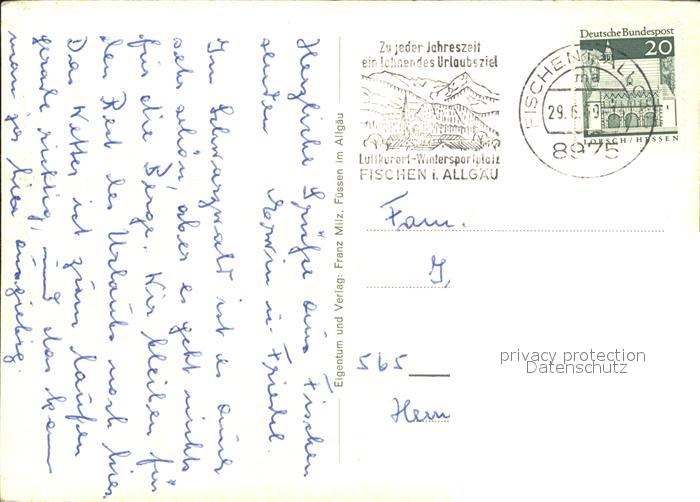 Herzliche Grüße aus Fischen
senden Erwin u. Friedel.
Im Schwarzwald ist es auch
sehr schön, aber es geht nichts
für die Berge. Wir bleiben für
den Rest des Urlaubs noch hier,
Das Wetter ist zum laufen
gerade richtig, und das kann
man ja hier ausgiebig.
Eigentum und Verlag: Franz Milz, Füssen im Allgäu
Zu jeder Jahreszeit
ein lohnendes Urlaubsziel
Luftkurort-Wintersportplatz
FISCHEN i. ALLGÄU
FISCHEN i. ALLG
ma
29.6.69
8975
Deutsche Bundespost
20
LORSCH/HESSEN
Fam.
565
Hern
privacy protection
Datenschutz